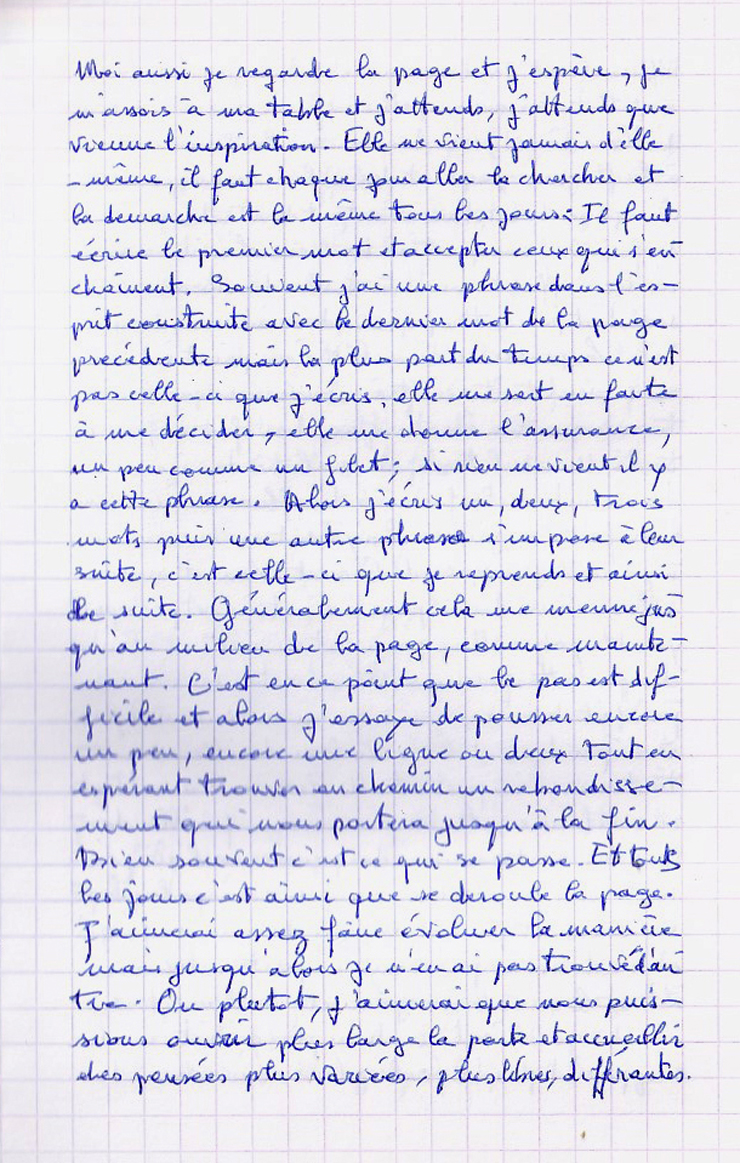 Moi aussi je regarde la page et j'espère, je
m'assois à ma table et j'attends, j'attends que
vienne l'inspiration. Elle ne vient jamais d'elle
-même, il faut chaque jour aller la chercher et
la demarche est la même tous les jours : Il faut
écrire le premier mot et accepter ceux qui s'en
chaînent. Souvent j'ai une phrase dans l'es-
prit construite avec le dernier mot de la page
precédente mais la plus part du temps ce n'est
pas celle-ci que j'écris, elle me sert en faite
à me décider, elle me donne l'assurance,
un peu comme un filet ; si rien ne vient il y
a cette phrase. Alors j'écris un, deux, trois
mots puis une autre phrase s'impose à leur
suite, c'est celle-ci que je reprends et ainsi
de suite. Généralement cela me mene jus
qu'au milieu de la page, comme mainte-
nant. C'est en ce point que le pas est dif-
ficile et alors j'essaye de pousser encore
un peu, encore une ligne ou deux tout en
espérant trouver en chemin un rebondisse-
ment qui nous portera jusqu'à la fin.
Bien souvent c'est ce qui se passe. Et touts
les jours c'est ainsi que se deroule la page.
J'aimerai assez faire évoluer la manière
mais jusqu'alors je n'en ai pas trouvé d'au
tre. Ou plutot, j'aimerai que nous puis-
sions ouvrir plus large la porte et accueillir
des pensées plus variées, plus libres, différantes.